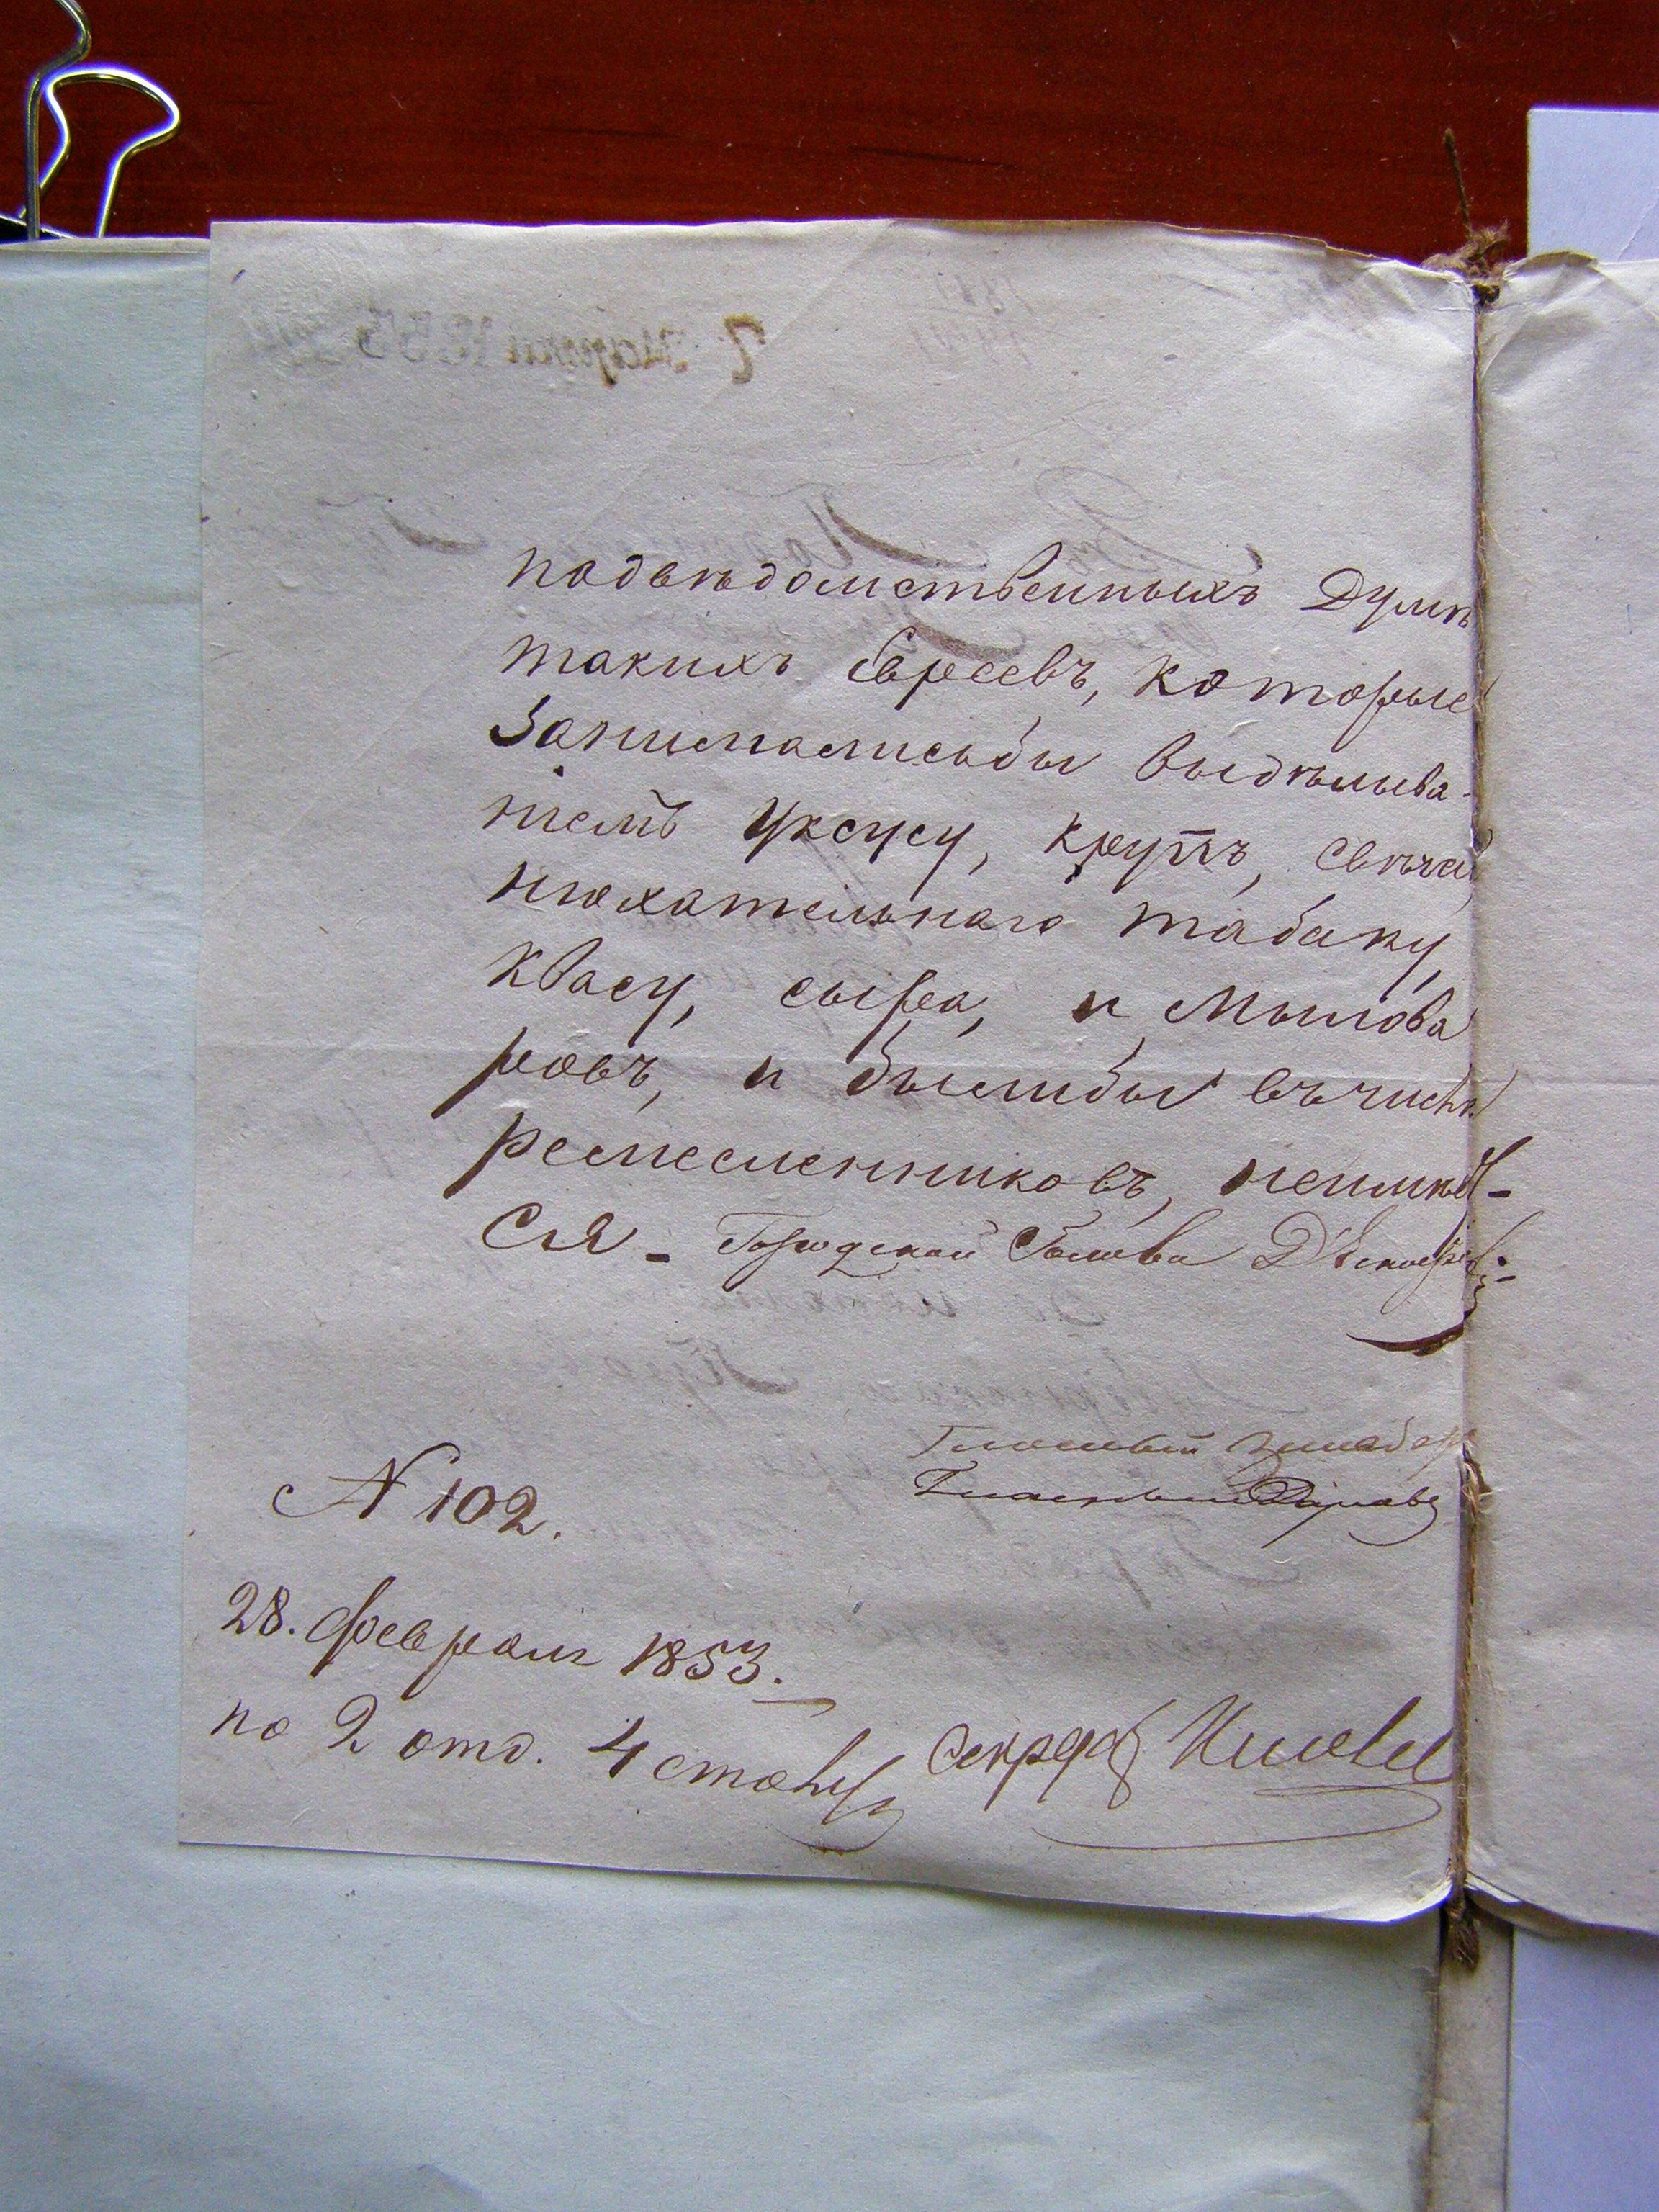 подвѣдомственныхъ Думѣ
такихъ Евреевъ, которые
занимались бы выдѣлыва-
ніемъ Уксусу, крупъ, свѣчъ,
нюхательнаго табаку,
квасу, сыра, и Мылова
ровъ, и былибы въ числѣ
ремесленниковъ, неимѣет-
ся – Городской Голова
Гласный
Гласный
N 102.
28. февраля 1853.
по 2 отд. 4 столу
Секрет